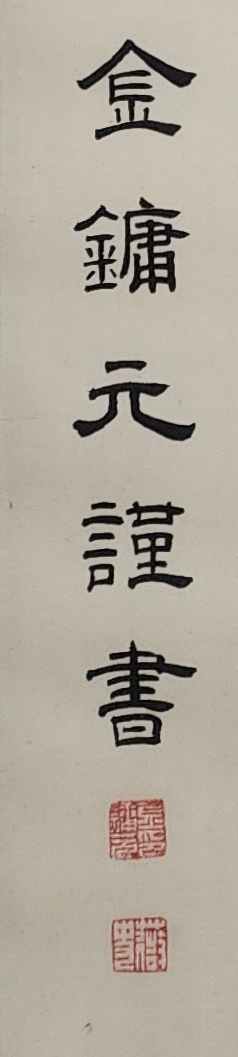 金鏞元謹書